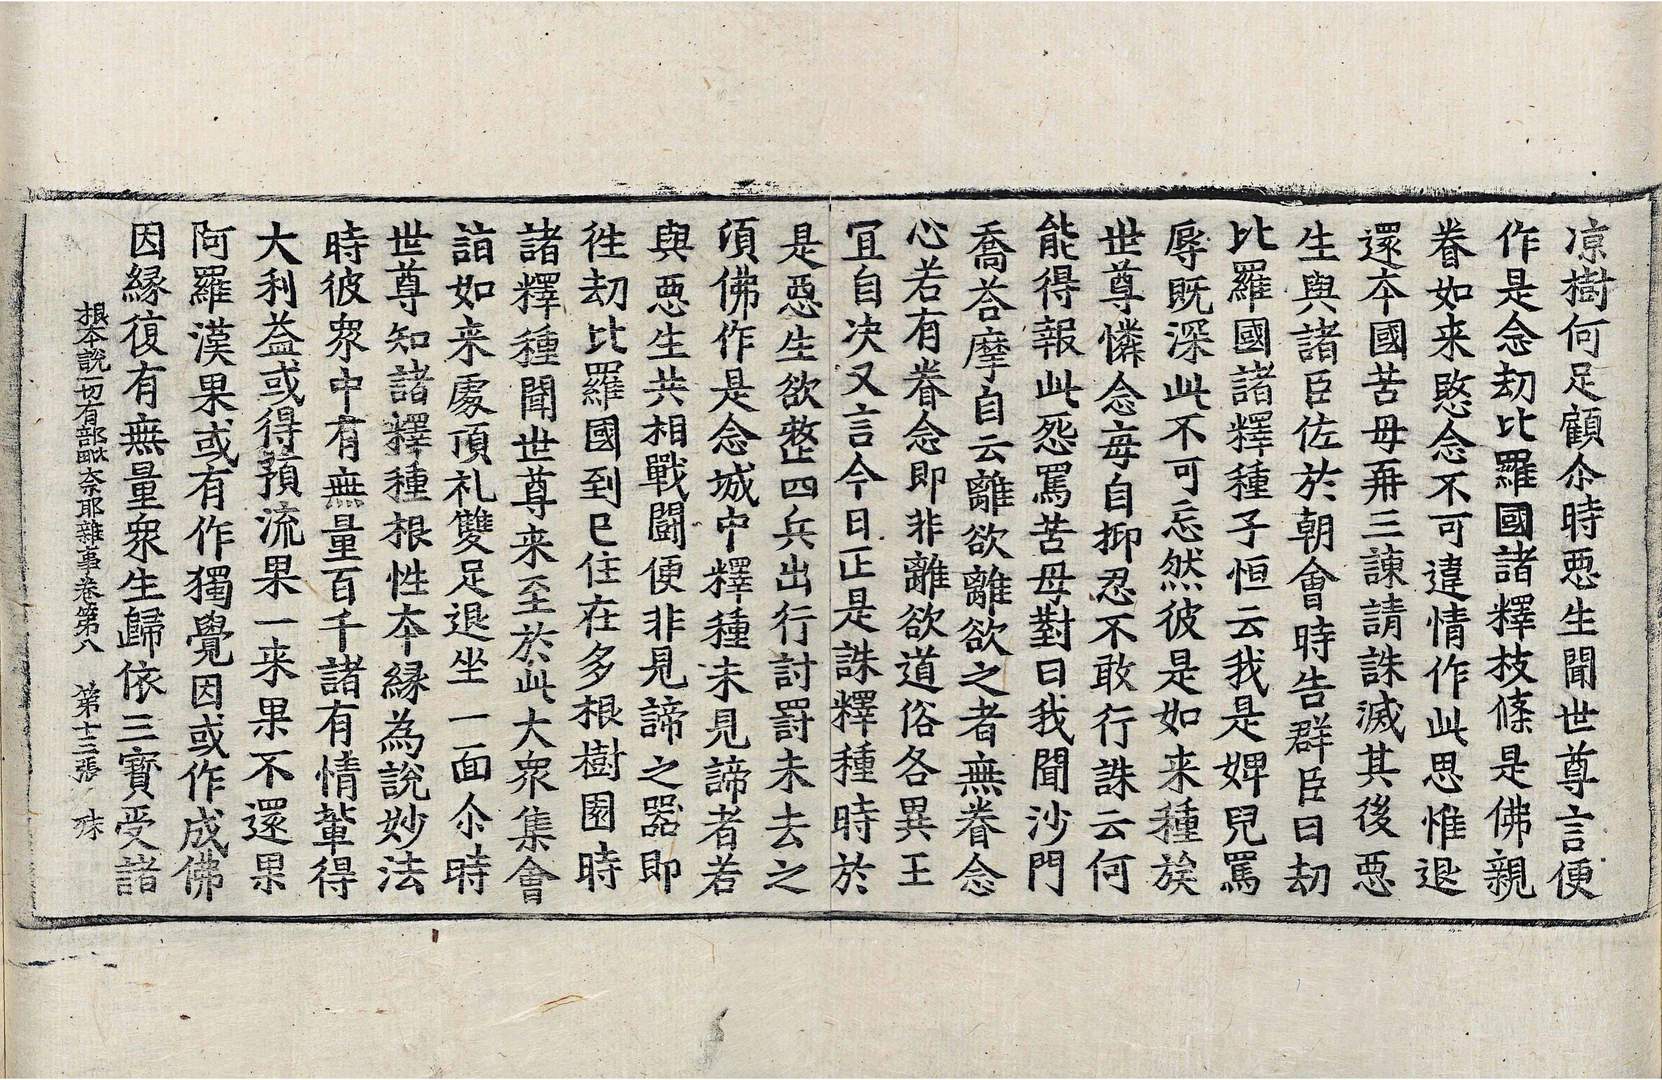 凉樹何足顧尒時惡生聞世尊言便
作是念刧比羅國諸釋枝條是佛親
眷如来愍念不可違情作此思惟退
還本國苦母再三諫請誅滅其後惡
生與諸臣佐於朝會時告群臣曰刧
比羅國諸釋種子恒云我是婢兒罵
辱既深此不可忘然彼是如来種族
世尊憐念每自抑忍不敢行誅云何
能得報此怨罵苦母對曰我聞沙門
喬荅摩自云離欲離欲之者無眷念
心若有眷念即非離欲道俗各異王
冝自决又言今日正是誅釋種時於
是惡生欲整四兵出行討罸未去之
須佛作是念城中釋種未見諦者若
與惡生共相戰鬪便非見諦之器即
徃刧比羅國到已住在多根樹園時
諸釋種聞世尊来至於此大衆集會
詣如来處頂礼雙足退坐一面尒時
世尊知諸釋種根性本緣為說妙法
時彼衆中有無量百千諸有情輩得
大利益或得預流果一来果不還果
阿羅漢果或有作獨覺因或作成佛
因緣復有無量衆生歸依三寳受諸
根本說一切有部毗奈耶雜事卷第八　第十三張　殊